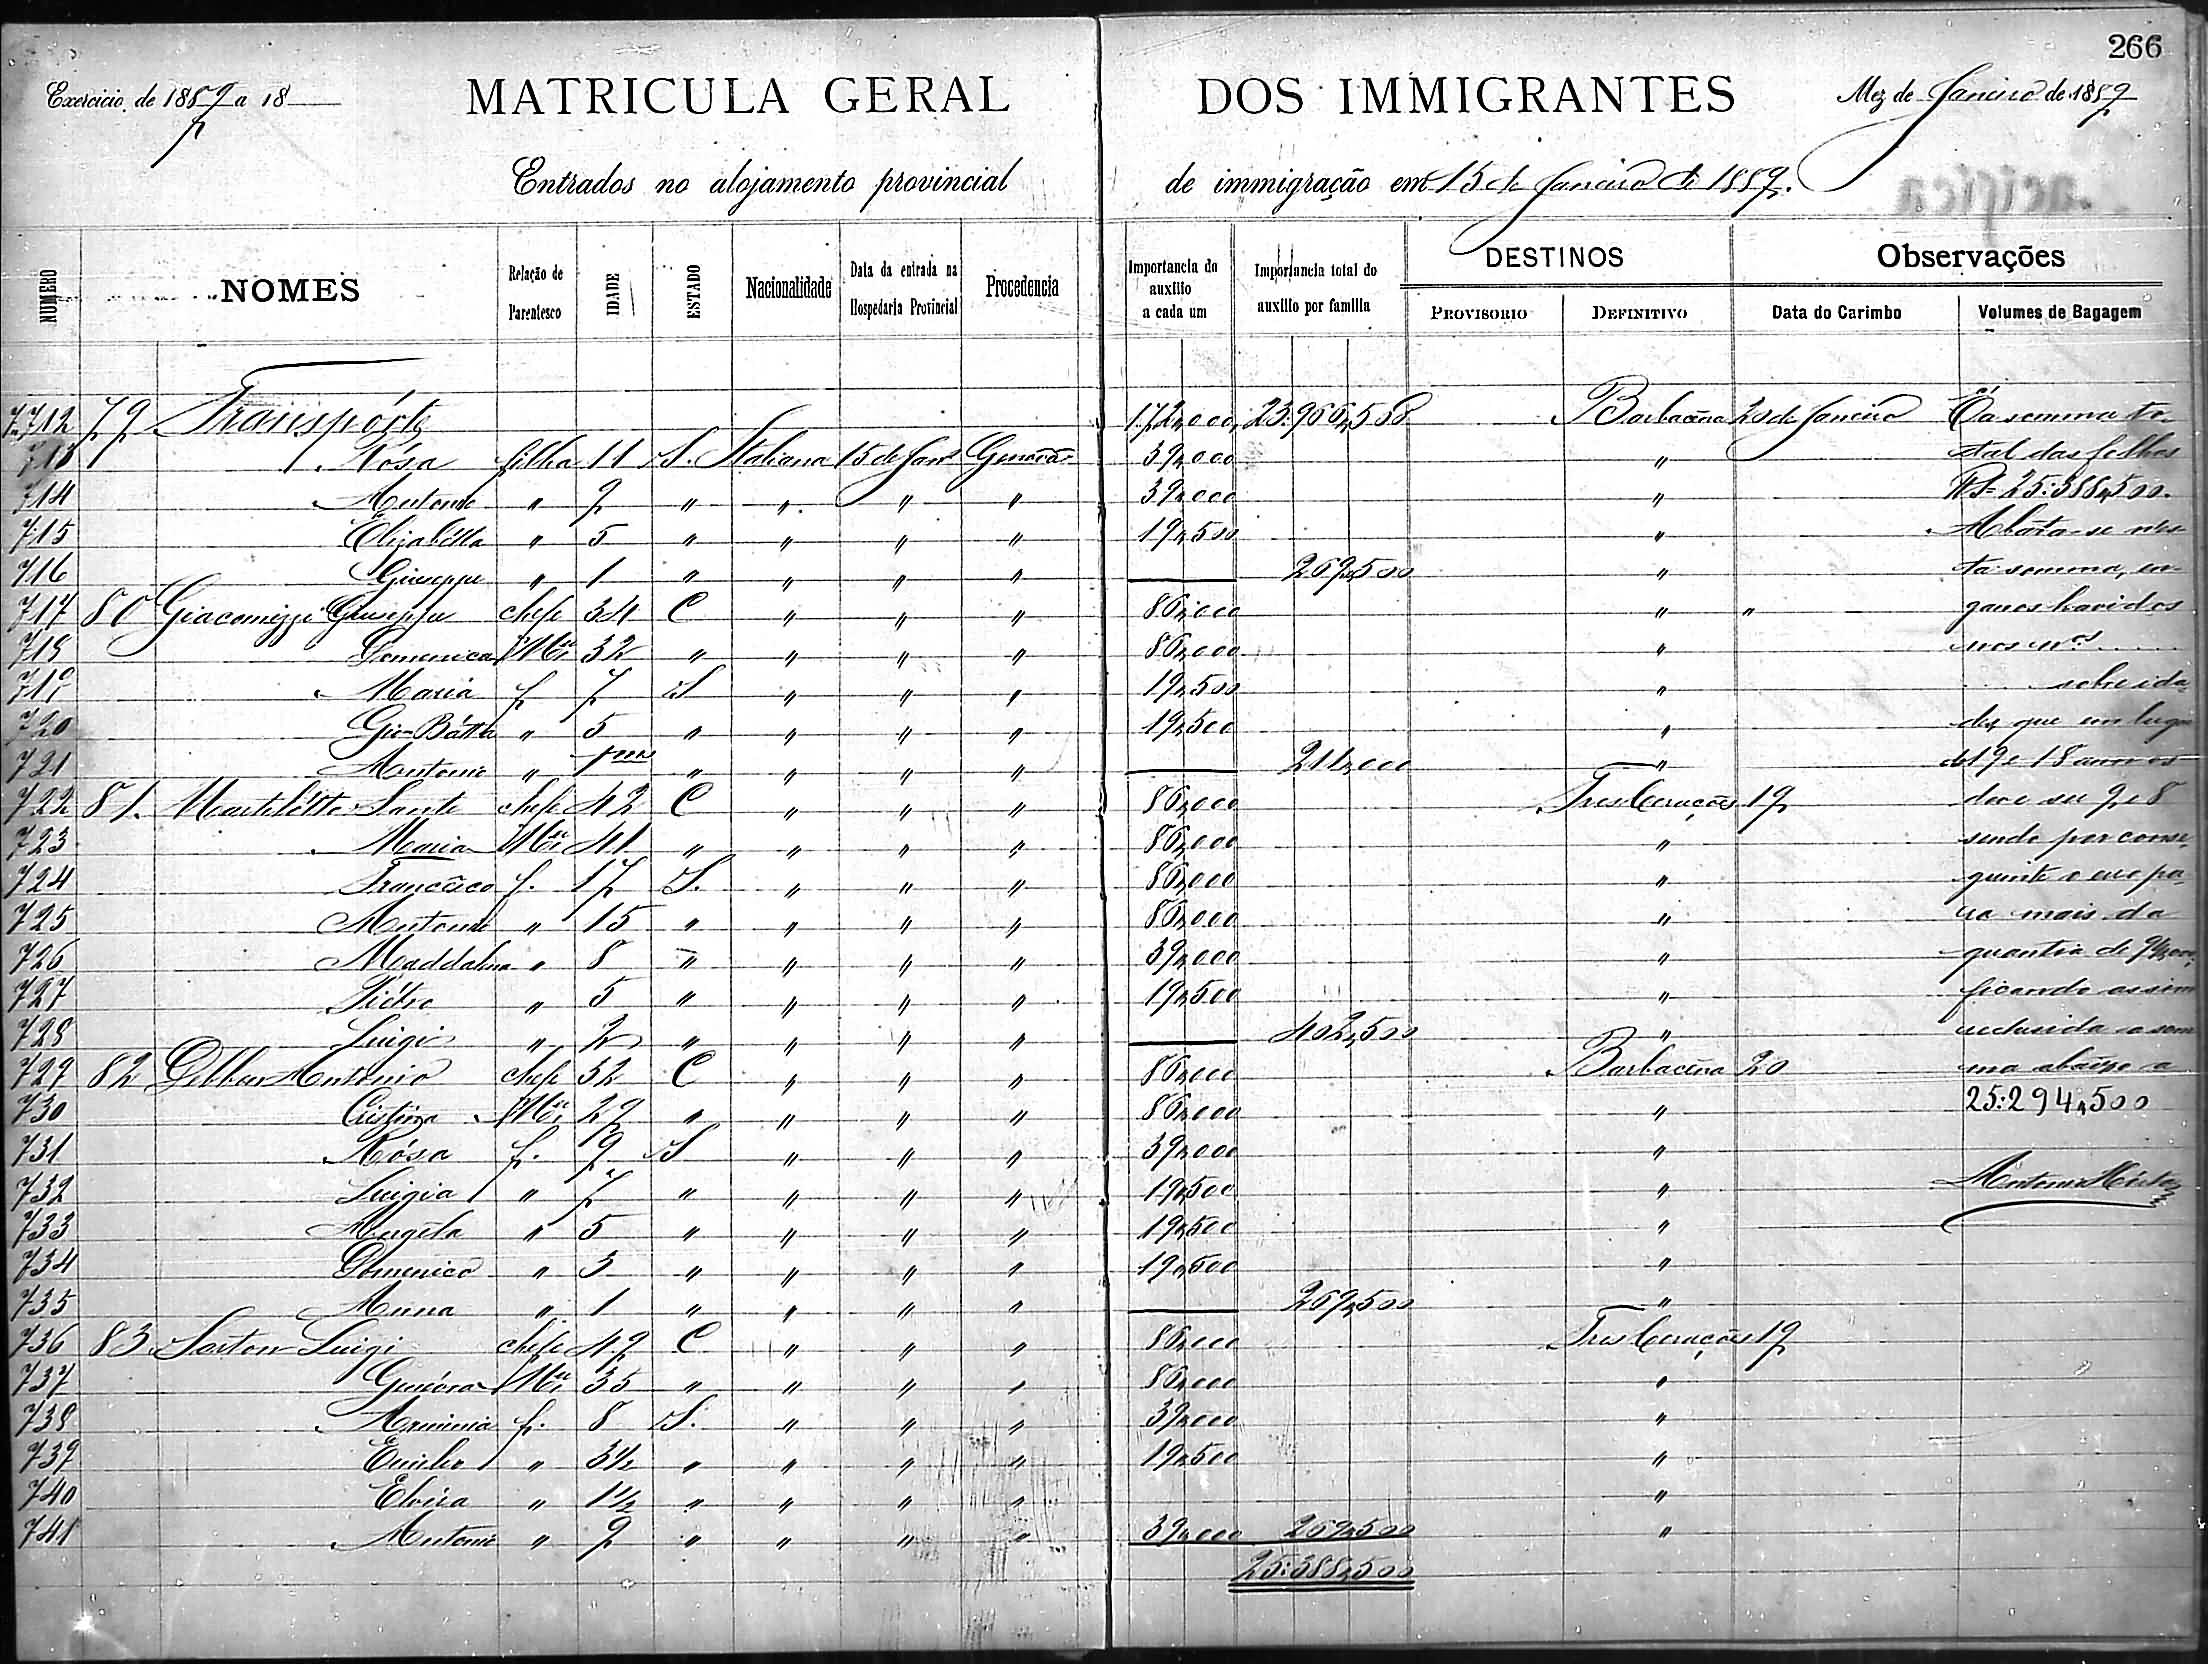 266
Exercicio de 1889 a 18
MATRICULA GERAL DOS IMMIGRANTES
Mez de Janeiro de 1889
Entrados no alojamento provincial de immigração em 15 de Janeiro de 1889.
NUMERO NOMES Relação de Parentesco IDADE ESTADO Nacionalidade Data da entrada na Hospedaria Provincial Procedencia Importancia do auxilio a cada um Importancia total do auxilio por familia DESTINOS PROVISORIO DEFINITIVO Observações Data do Carimbo Volumes de Bagagem
7712 79 Transpórte 172,000 Barbacena 20 de Janeiro Da somma to-
713 Rósa filha 11 S. Italiana 15 de Jan Genova 39,000 " tal das folhas
714 Antonio " 9 " " " " 39,000 " RS= 25:388,500.
715 Elisabetta " 5 " " " " 19,500 " Abata-se nes-
716 Giuseppe " 1 " " " " 269,500 " ta somma, en-
717 80 Giacomizzi Giuseppe chefe 34 C " " " 86,000 " " ganos havidos
718 Domenica Mer 32 " " " " 86,000 " nos nos
719 Maria f 7 S " " " 19,500 " sobre ida-
720 Gio-Batta " 5 " " " " 19,500 " des, que em lugar
721 Antonio " 1 " " " " 211,000 " de 19 e 18 annos
722 81. Santi chefe 42 C " " " 86,000 Tres Corações 19 9 e 8
723 Maria Mer 41 " " " " 86,000 " sendo por conse-
724 Francesco f. 17 S. " " " 86,000 " guinte pa-
725 Antonio " 15 " " " " 86,000 " ra mais da
726 Maddalena " 8 " " " " 39,000 " quantia de 94,000,
727 Piétro " 5 " " " " 19,500 " ficando assim
728 Luigi " 2 " " " " 402,500 " reduzida a som-
729 82 Antonio chefe 32 C " " " 86,000 Barbacena 20 ma abaixo a
730 Cristina Mer 29 " " " " 86,000 " 25:294,500
731 Rósa f. 9 S " " " 39,000 "
732 Luigia " 7 " " " " 19,500 " Antonio
733 Angéla " 5 " " " " 19,500 "
734 Domenico " 3 " " " " 19,500 "
735 Anna " 1 " " " " 269,500 "
736 83 Sarton Luigi chefe 49 C " " " 86,000 Tres Corações 19
737 Mer 35 " " " " 86,000 "
738 Arminia f. 8 S. " " " 39,000 "
739 Emilio " 3½ " " " " 19,500 "
740 Elvira " 1½ " " " " "
741 Antonio " 9 " " " " 39,000 269,500 "
25:388,500